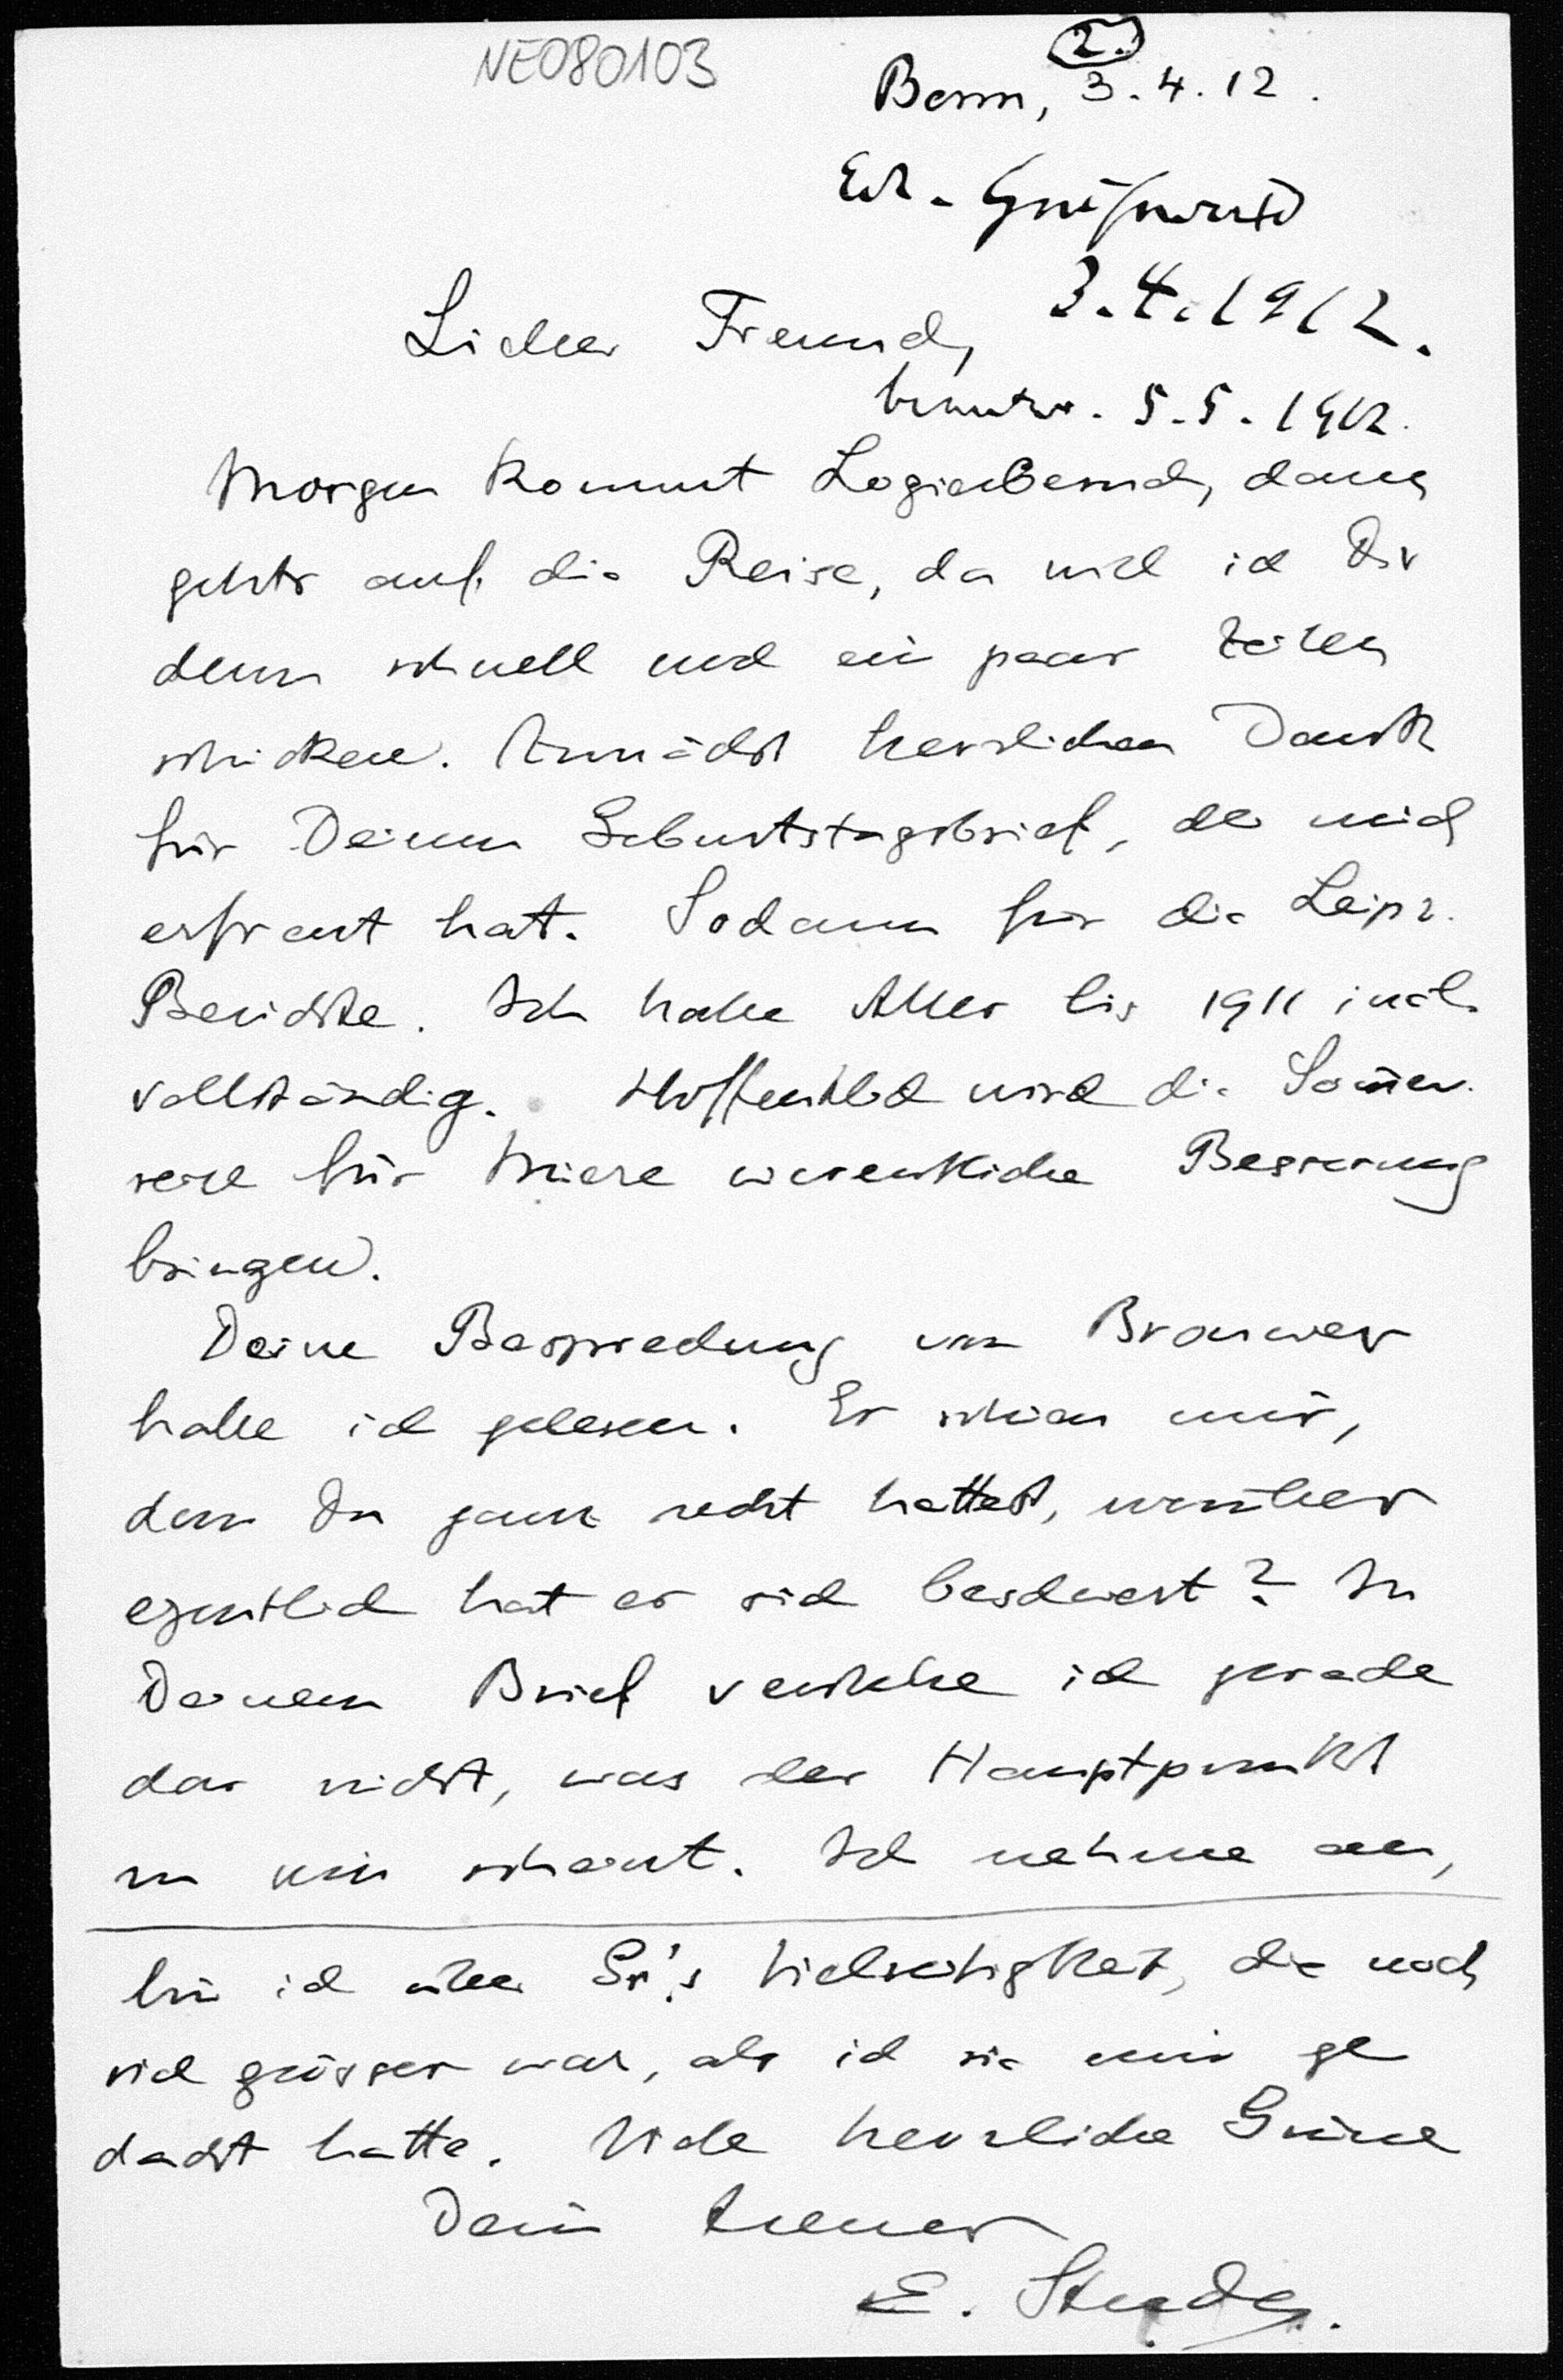 NE080103
2.
Bonn, 3.4.12.
Erh. Greifswald
3.4.1912.
Lieber Freund,
beantw. 5.5.1912.
Morgen kommt Logierbesuch, dann
gehts auf die Reise, da will ich Dir
denn schnell noch ein paar Zeilen
schicken. Zunächst herzlichen Dank
für Deinen Geburtstagsbrief, der mich
erfreut hat. Sodann für die Leipz.
Berichte. Ich habe Alles bis 1911 incl.
vollständig. Hoffentlich wird die Sommer-
reise für wesentliche Besserung
bringen.
Deine Besprechung von Brouwer
habe ich gelesen. Es schien mir,
dass Du ganz recht hattest, worüber
eigentlich hat er sich beschwert? In
Deinem Brief verstehe ich gerade
das nicht, was der Hauptpunkt
zu sein scheint. Ich nehme an,
bin ich über Gr's Vielseitigkeit, die noch
viel grösser war, als ich sie mir ge
dacht hatte. Viele herzliche Grüsse
Dein treuer
E. Study.